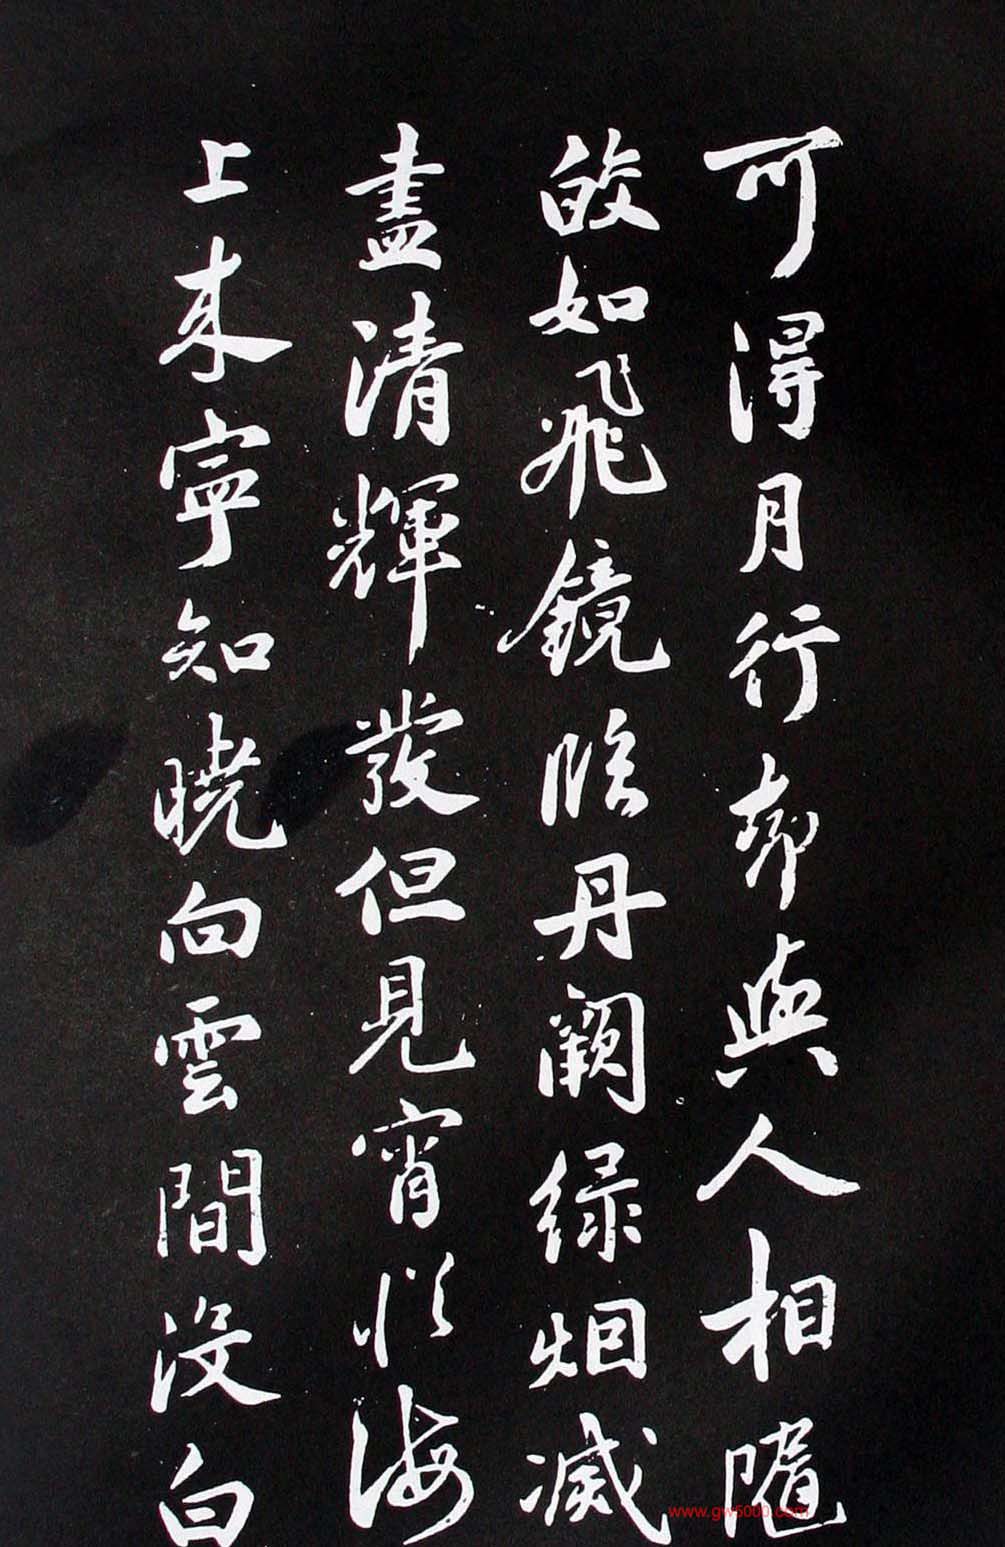 可得月行却與人相隨
皎如飛鏡臨丹闕緑烟滅
盡清輝發但見宵從海
上来寧知曉向雲間没白
www.gw5000.com